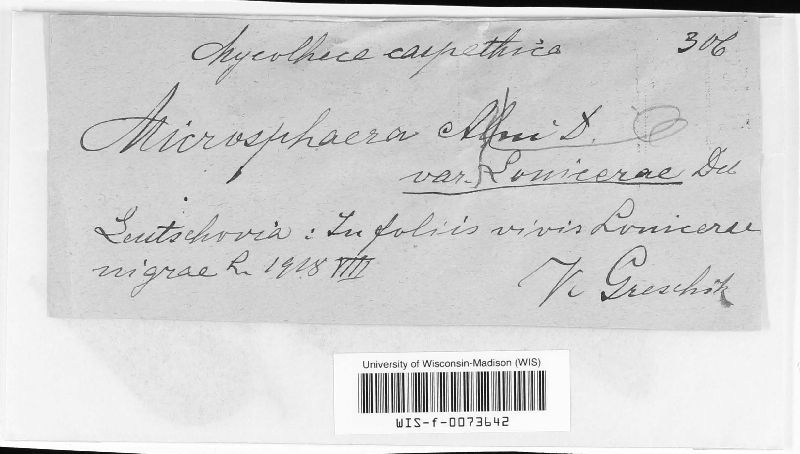 Mycotheca carpathica 306
Microsphaera Alni D.
var. Lonicerae Del
Leutschovia : In foliis vivis Lonicerae
nigrae L. 1918 VIII
V. Greschik
University of Wisconsin-Madison (WIS)
WIS-f-0073642